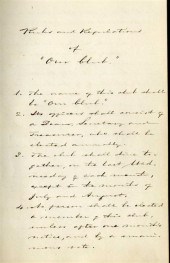 Rules and Regulations
of
"Our Club."
1. The name of this club shall
be "Our Club."
2. Its officers shall consist of
a Dean, Secretary and
Treasurer, who shall be
elected annually.
3. The club shall dine to-
gether, on the last Wed-
nesday of each month,
except in the months of
July and August.
4. No person shall be elected
a member of this club,
unless after one month's
notice, and by a unani-
mous vote.